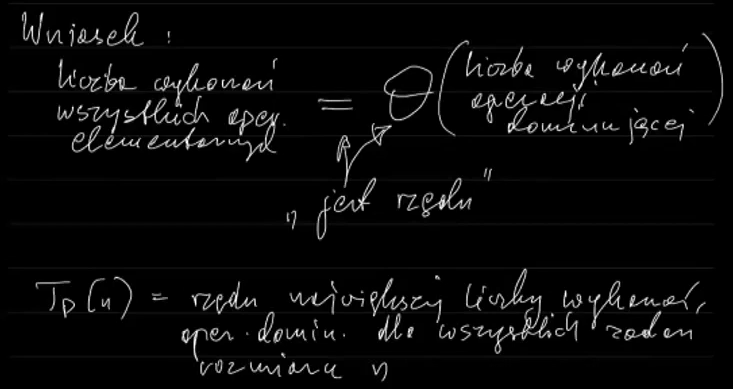 Wniosek :
liczba wykonań
wszystkich oper.
elementarnych
= Θ (liczba wykonań
operacji
dominującej)
„ jest rzędu "
T_P(n) = rzędu największej liczby wykonań,
oper. domin. dla wszystkich zadań
rozmiaru n